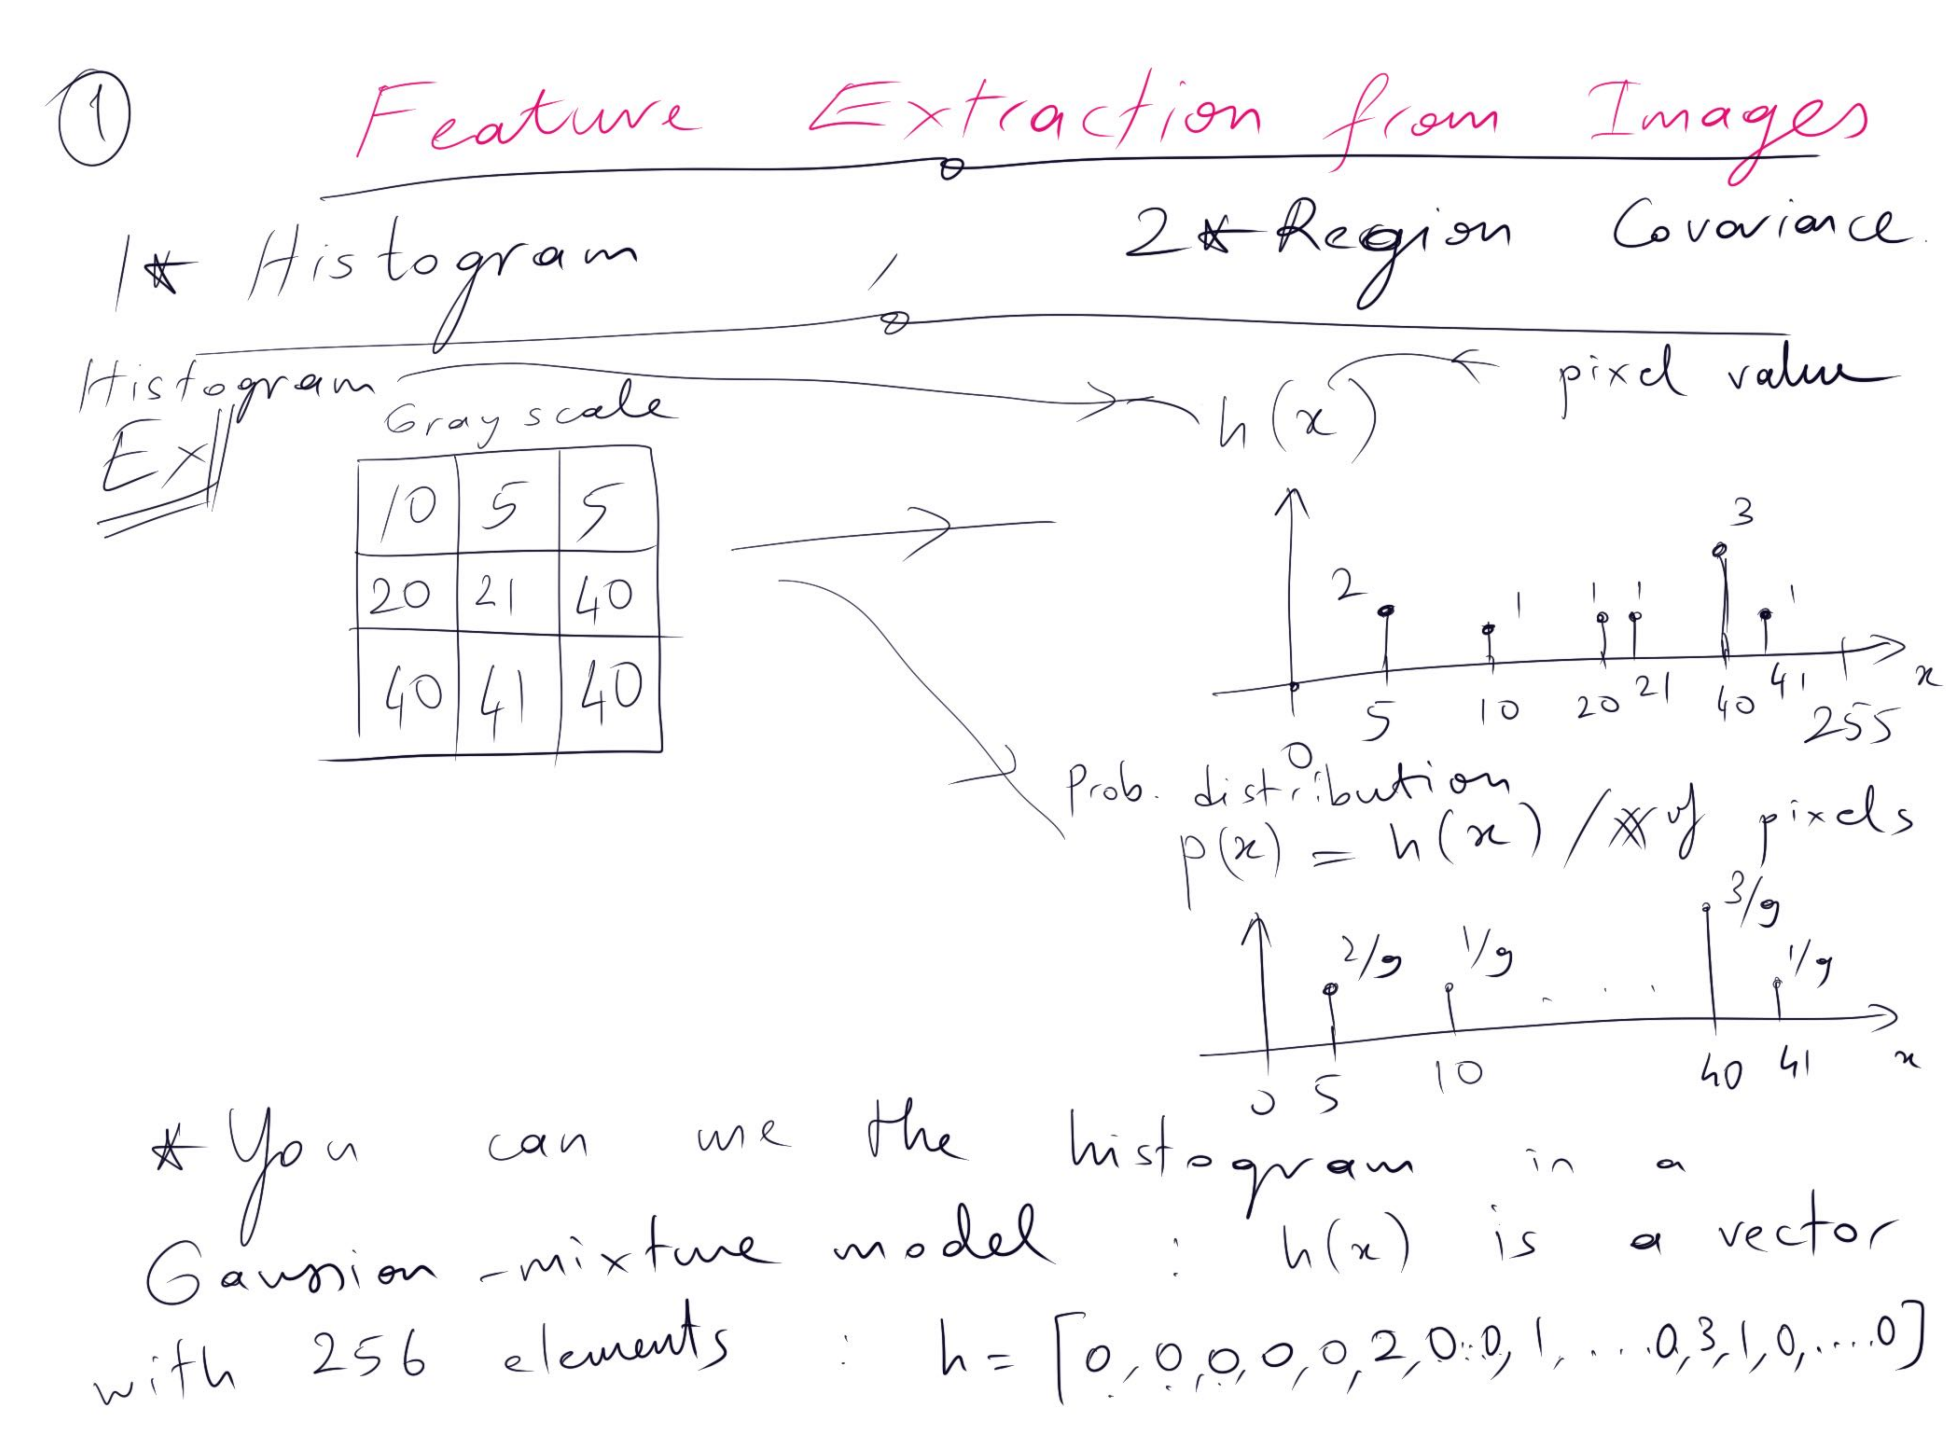 1 Feature Extraction from Images
1* Histogram , 2* Region Covariance
Histogram h(x) pixel value
Ex
Gray scale
10 5 5
20 21 40
40 41 40
2 1 1 1 3 1
0 5 10 20 21 40 41 255 x
Prob. distribution
p(x) = h(x) / # of pixels
2/9 1/9 . . . . 3/9 1/9
0 5 10 40 41 x
* You can use the histogram in a
Gaussian-mixture model : h(x) is a vector
with 256 elements : h = [0,0,0,0,0,2,0..0,1,....0,3,1,0,....0]